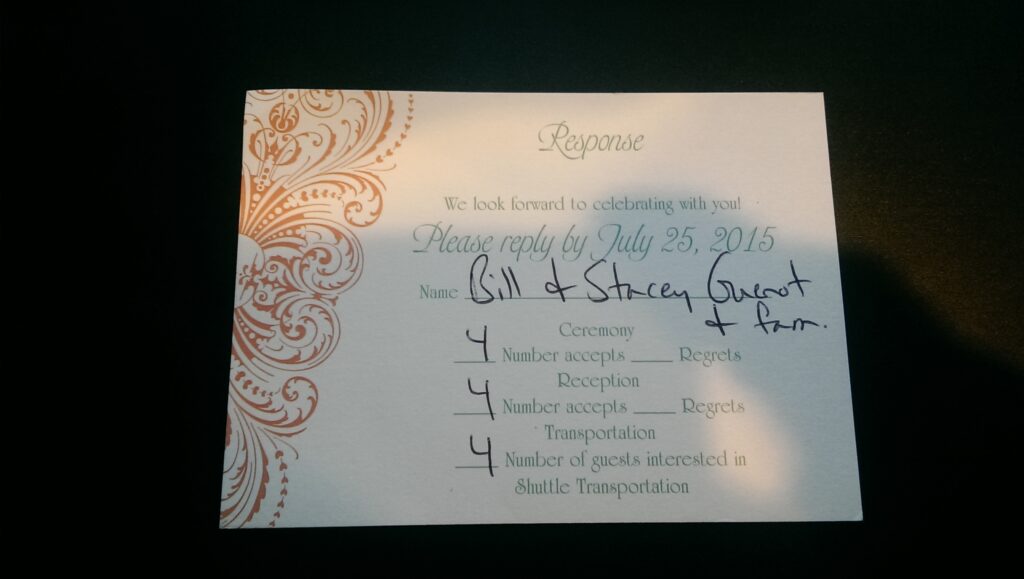 Response
We look forward to celebrating with you!
Please reply by July 25, 2015
Name Bill & Stacey Guerot
& fam.
Ceremony
4 Number accepts ____ Regrets
Reception
4 Number accepts ____ Regrets
Transportation
4 Number of guests interested in
Shuttle Transportation